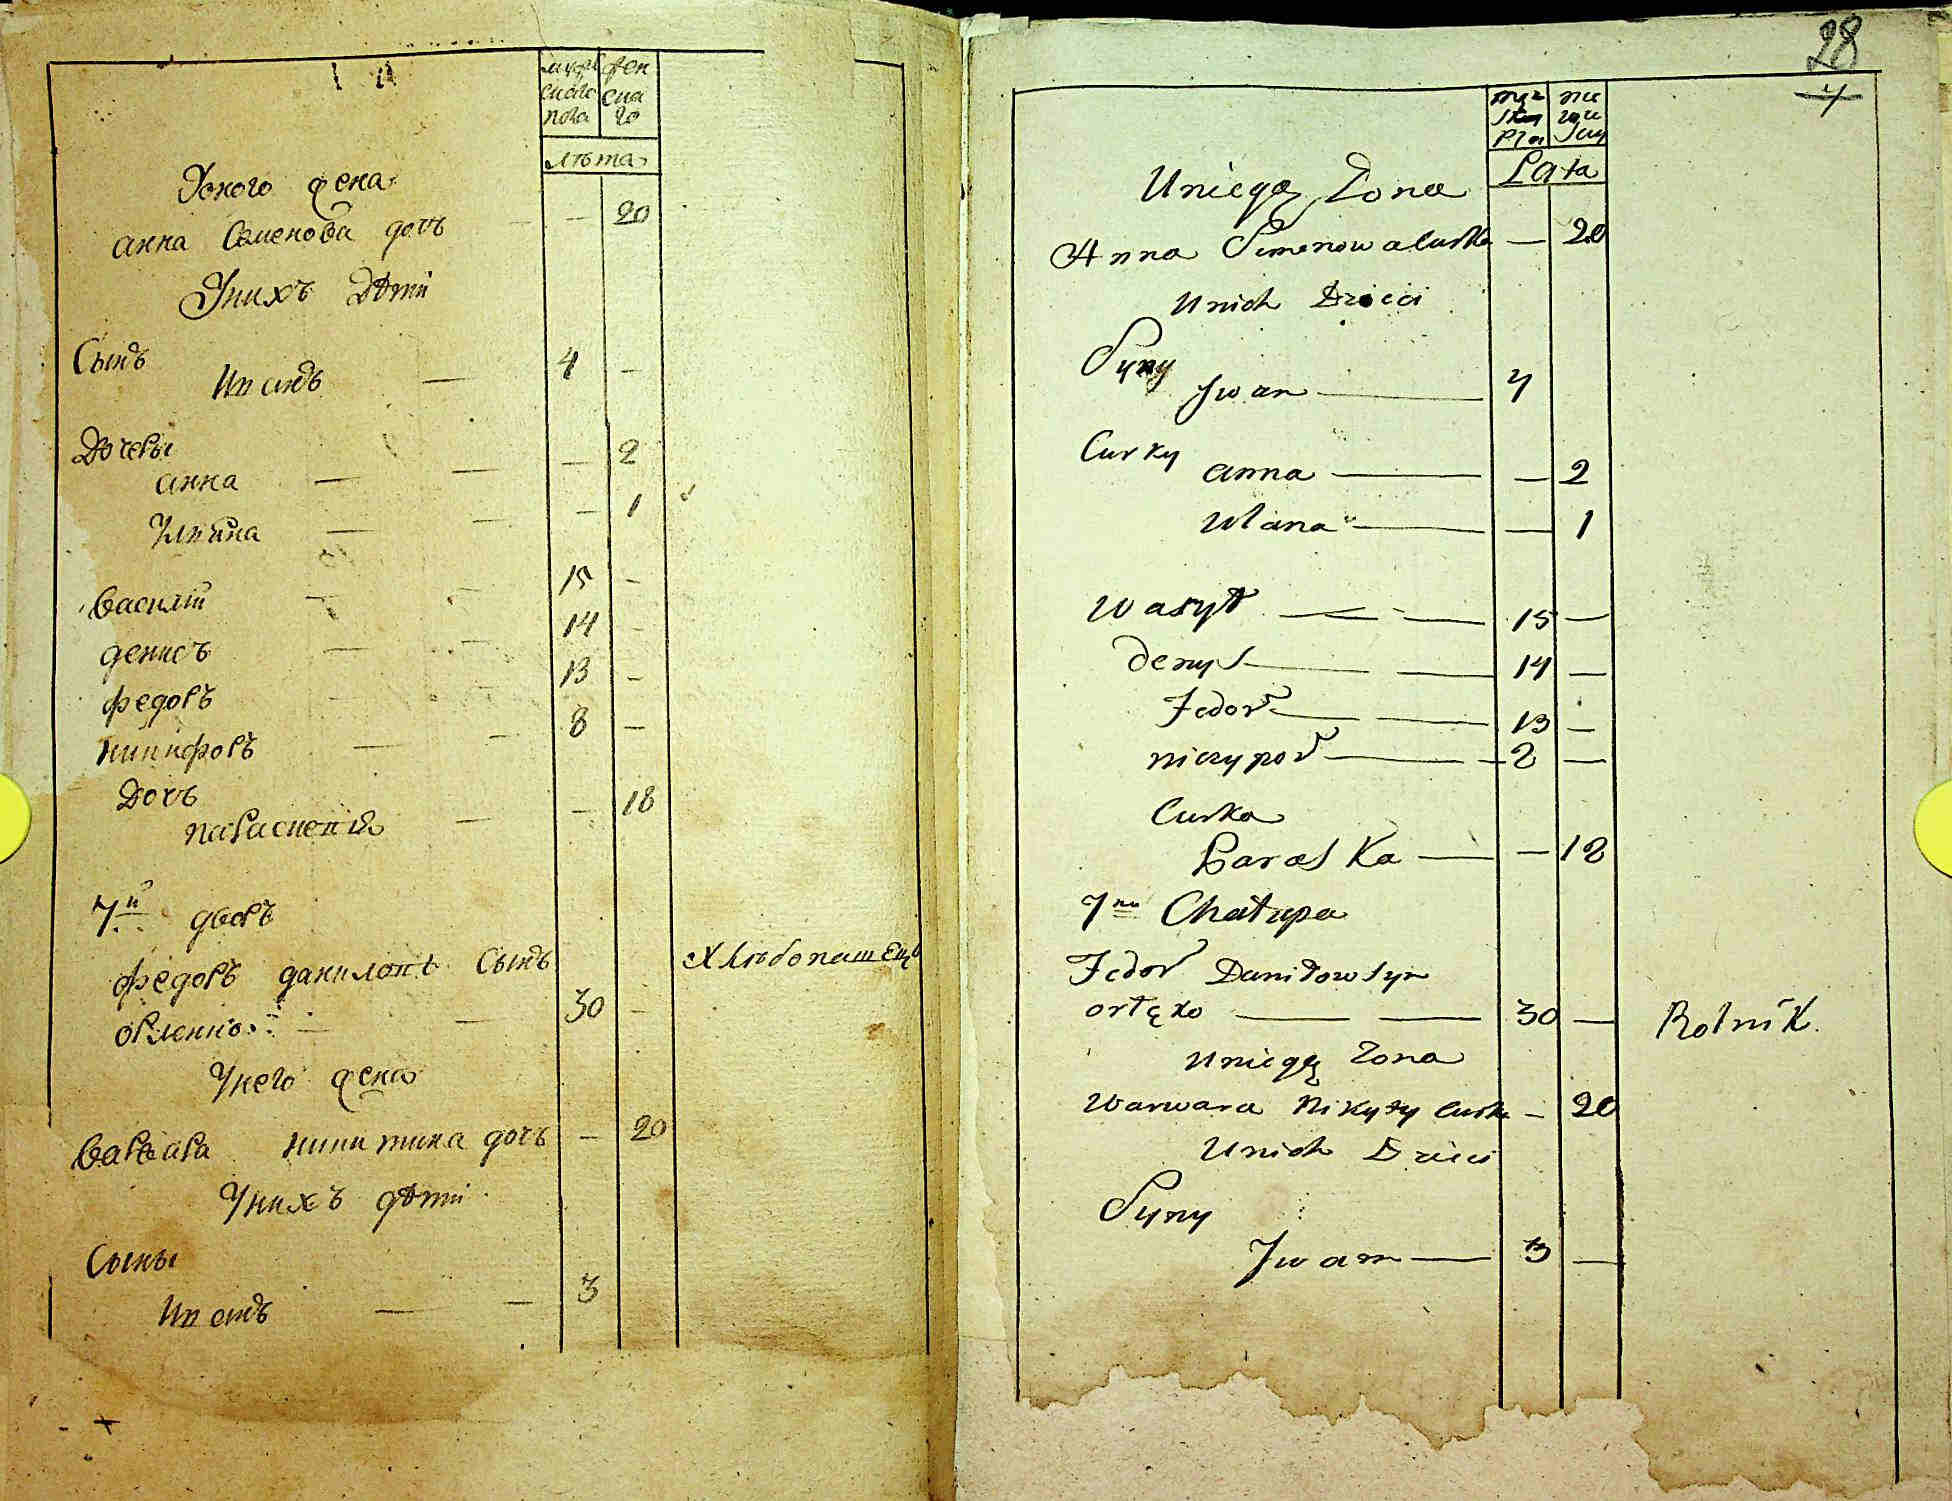 мужескаго пола
женскаго
лѣта
Уоного жена
анна Семенова дочъ — 20
Унихъ Дѣти
Сынъ
Иванъ — 4 —
Дочеры
анна — — — 2
Улияна — — — 1
василий — 15 —
денисъ — — 14 —
федоръ — — 13 —
никифоръ — — 8 —
Дочъ
параскевія — — 18
7й дворъ
федоръ даниловъ Сынъ Хлѣбопашецъ
орленко — — 30 —
Унего жена
варвара никитина дочъ — 20
Унихъ дѣти
Сыны
Иванъ — — 3
28
męzskey Pla
nie wie sciey
Lata
Uniegę Zona
Anna Semenowa Curka — 20
Unich Dzieci
Syny
Jwan — 4
Curky
anna — — 2
Ulana — — 1
Wasył — — 15 —
denys — — 14 —
Fedor — — 13 —
niczypor — 8 —
Curka
Paraska — — 18
7ma Chałupa
Fedor Daniłow Syn
orlęko — — 30 — Rolnik.
Uniegę Zona
Warwara Nikyty Curka — 20
Unich Dzieci
Syny
Jwan — 3 —